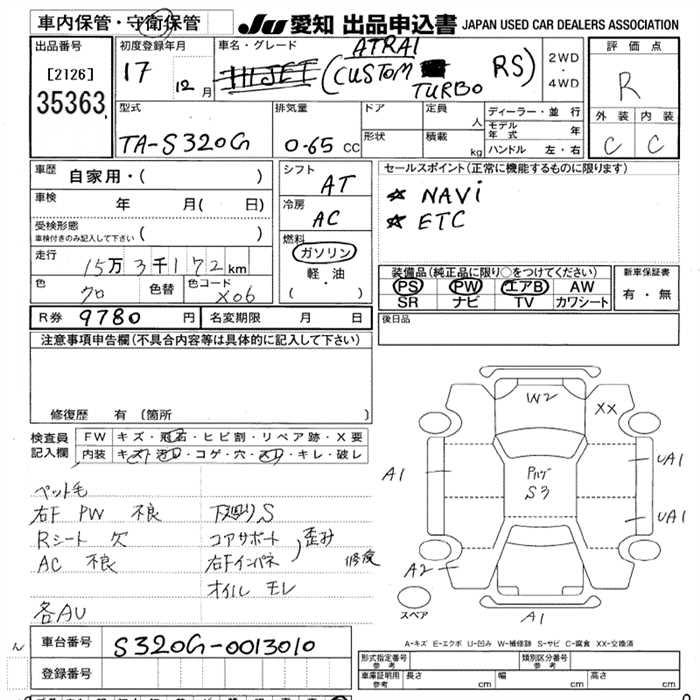 車内保管・守衛保管
JU 愛知 出品申込書 JAPAN USED CAR DEALERS ASSOCIATION
出品番号
[2126]
35363
初度登録年月
17 12月
車名・グレード
HIJET (ATRAI
CUSTOM TURBO RS)
2WD
・
4WD
評価点
R
外装 内装
C C
型式
TA-S320G
排気量
0.65 CC
ドア
形状
定員
人
積載
kg
ディーラー・並行
モデル年式 年
ハンドル 左・右
車歴
自家用・( )
車検
年 月( 日)
受検形態
車検付きのみ記入して下さい ( )
走行
15万3千172km
色
クロ
色替
色コード
X06
シフト
AT
冷房
AC
燃料
ガソリン
軽・油
( ・ )
セールスポイント(正常に機能するものに限ります)
☆ NAVi
☆ ETC
装備品(純正品に限り○をつけてください)
PS PW エアB AW
SR ナビ TV カワシート
新車保証書
有・無
R券 9780円 名変期限 月 日
後日品
注意事項申告欄(不具合内容等は具体的に記入して下さい)
修復歴 有(箇所 )
検査員記入欄
FW キズ・飛石・ヒビ割・リペア跡・X要
内装 キズ・汚れ・コゲ・穴・スレ・キレ・破レ
ペット毛
右F PW 不良 下廻りS
Rシート 欠 コアサポート 歪み
AC 不良 右Fインパネ 修復
オイル モレ
各AU
W2
XX
A1
UA1
Pハゲ
S3
UA1
A2
A1
スペア
A-キズ E-エクボ U-凹み W-補修跡 S-サビ C-腐食 XX-交換済
車台番号 S320G-0013010
登録番号
形式指定番号 参考
類別区分番号 参考
車庫証明用 参考 長さ cm 幅 cm 高さ cm